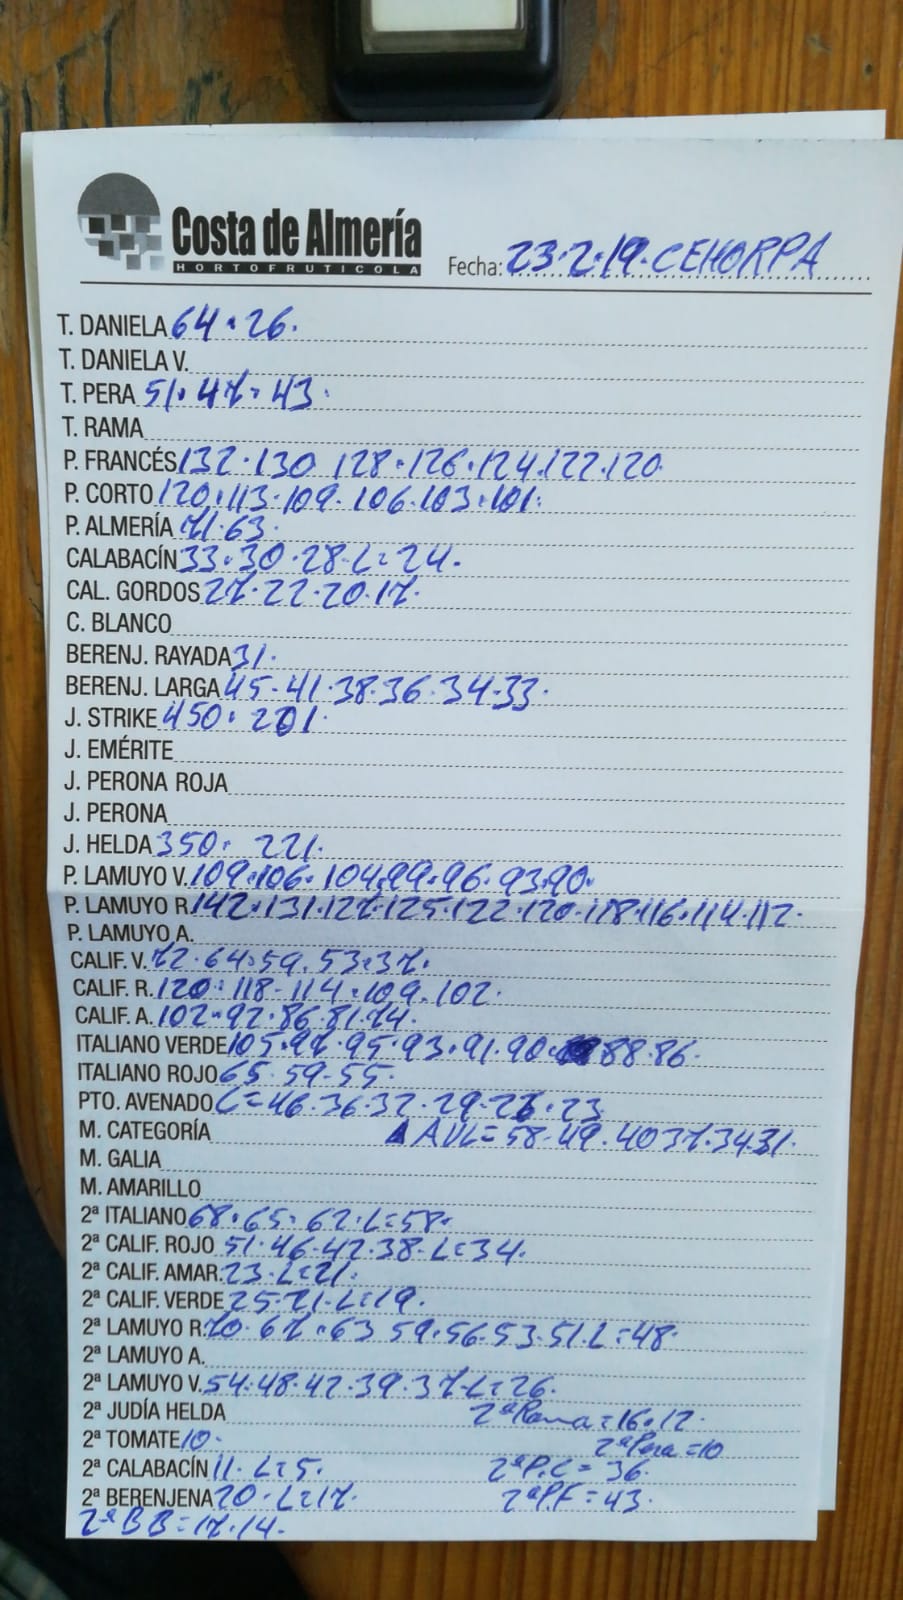 Costa de Almería
HORTOFRUTICOLA
Fecha: 23·2·19·CEHORPA
T. DANIELA 64·26·
T. DANIELA V.
T. PERA 51·47·43·
T. RAMA
P. FRANCÉS 132·130 128·126·124·122·120
P. CORTO 120·113·109·106·103·101·
P. ALMERÍA 71·63·
CALABACÍN 33·30·28·L=24·
CAL. GORDOS 27·22·20·17·
C. BLANCO
BERENJ. RAYADA 31·
BERENJ. LARGA 45·41·38·36·34·33·
J. STRIKE 450· 201·
J. EMÉRITE
J. PERONA ROJA
J. PERONA
J. HELDA 350· 221·
P. LAMUYO V. 109·106·104·99·96·93·90·
P. LAMUYO R. 142·131·127·125·122·120·118·116·114·112·
P. LAMUYO A.
CALIF. V. 72·64·59·53·37·
CALIF. R. 120·118·114·109·102·
CALIF. A. 102·92·86·81·74·
ITALIANO VERDE 105·97·95·93·91·90· 88·86·
ITALIANO ROJO 65·59·55·
PTO. AVENADO L=46·36·32·29·26·23
M. CATEGORÍA AVL=58·49·40 37·34·31·
M. GALIA
M. AMARILLO
2ª ITALIANO 68·65·62·L=58·
2ª CALIF. ROJO 51·46·42·38·L=34·
2ª CALIF. AMAR. 23·L=21·
2ª CALIF. VERDE 25·21·L=19·
2ª LAMUYO R. 70·67·63 59·56·53·51·L=48·
2ª LAMUYO A.
2ª LAMUYO V. 54·48·42·39·37·L=26·
2ª JUDÍA HELDA 2ª Rama=16·12·
2ª TOMATE 10· 2ª Pera=10
2ª CALABACÍN 11·L=5· 2ª P.C=36·
2ª BERENJENA 20·L=17· 2ª P.F=43·
2ª B B=17·14·